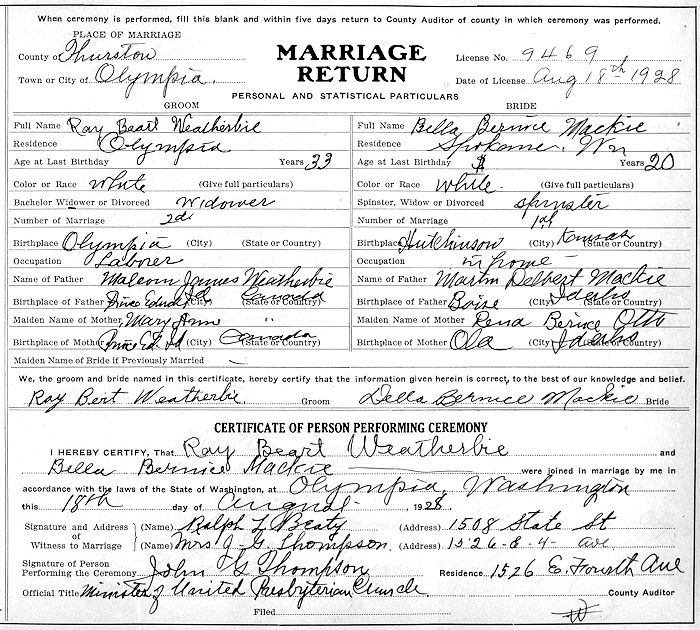 When ceremony is performed, fill this blank and within five days return to County Auditor of county in which ceremony was performed.
PLACE OF MARRIAGE
County of Thurston
Town or City of Olympia.
MARRIAGE
RETURN
License No. 9469
Date of License Aug 18th 1928
PERSONAL AND STATISTICAL PARTICULARS
GROOM
Full Name Ray Beart Weatherbie
Residence Olympia
Age at Last Birthday Years 33
Color or Race White (Give full particulars)
Bachelor Widower or Divorced Widower
Number of Marriage 2d
Birthplace Olympia (City) (State or Country)
Occupation Laborer
Name of Father Malcom James Weatherbie
Birthplace of Father Prince Edward Id (City) Canada (State or Country)
Maiden Name of Mother Mary Ann "
Birthplace of Mother Prince Ed. Id (City) Canada (State or Country)
Maiden Name of Bride if Previously Married
BRIDE
Full Name Bella Bernice Mackie
Residence Spokane, Wn
Age at Last Birthday Years 20
Color or Race White. (Give full particulars)
Spinster, Widow or Divorced Spinster
Number of Marriage 1st
Birthplace Hutchinson (City) Kansas (State or Country)
Occupation in home
Name of Father Martin Delbert Mackie
Birthplace of Father Boise (City) Idaho (State or Country)
Maiden Name of Mother Rena Bernice Otto
Birthplace of Mother Ola (City) Idaho (State or Country)
We, the groom and bride named in this certificate, hereby certify that the information given herein is correct, to the best of our knowledge and belief.
Ray Bert Weatherbie. Groom Della Bernice Mackie Bride
CERTIFICATE OF PERSON PERFORMING CEREMONY
I HEREBY CERTIFY, That Ray Beart Weatherbie and
Bella Bernice Mackie were joined in marriage by me in
accordance with the laws of the State of Washington, at Olympia, Washington
this 18th day of August 1928.
Signature and Address of Witness to Marriage
(Name) Ralph L Beaty (Address) 1508 State St
(Name) Mrs J. G. Thompson. (Address) 1526-E-4- Ave
Signature of Person
Performing the Ceremony John G Thompson Residence 1526 E. Fourth Ave
Official Title Minister of United Presbyterian Church County Auditor
Filed